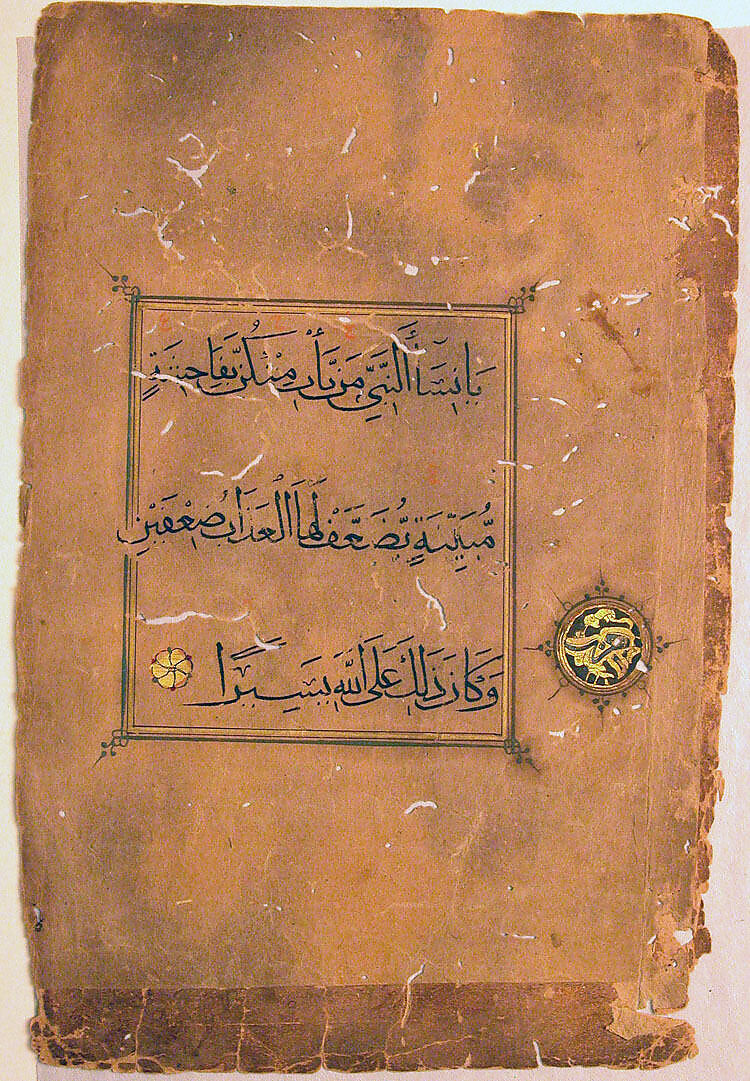 يَا نِسَآءَ النَّبِيِّ مَن يَأْتِ مِنْكُنَّ بِفَاحِشَةٍ
مُّبَيِّنَةٍ يُضَعَّفْ لَهَا الْعَذَابُ ضِعْفَيْنِ
وَكَانَ ذَلِكَ عَلَى اللَّهِ يَسِيرًا